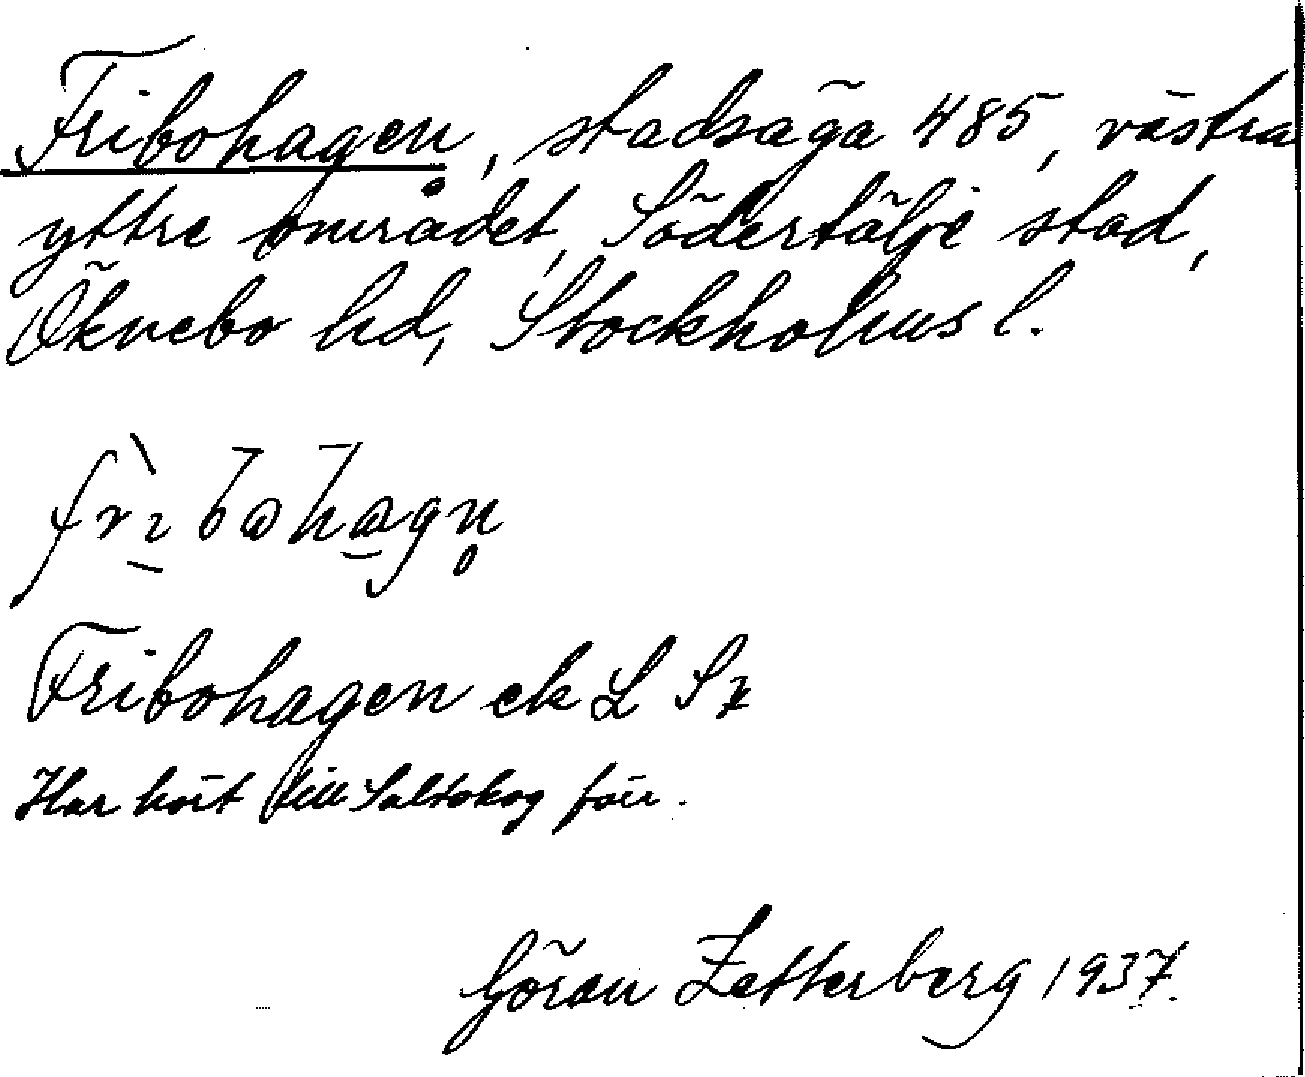 Fribohagen, stadsäga 485, västra
yttre området, Södertälje stad,
Öknebo hd, Stockholms l.
Fribohagen ek L
Har hört till Saltskog förr.
Göran Zetterberg 1937.